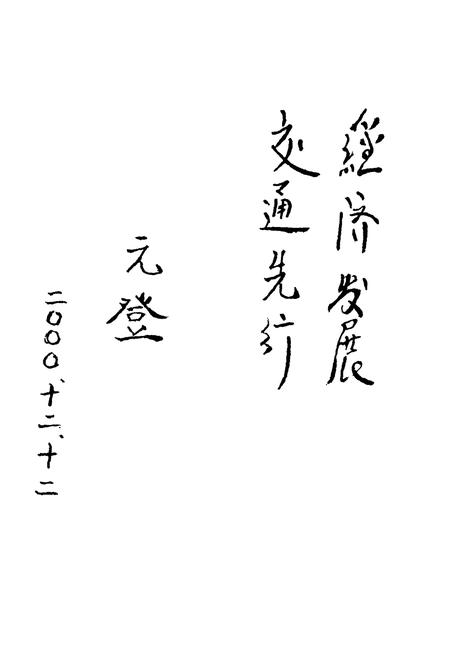 經济发展
交通先行
元登
二〇〇〇、十二、十二